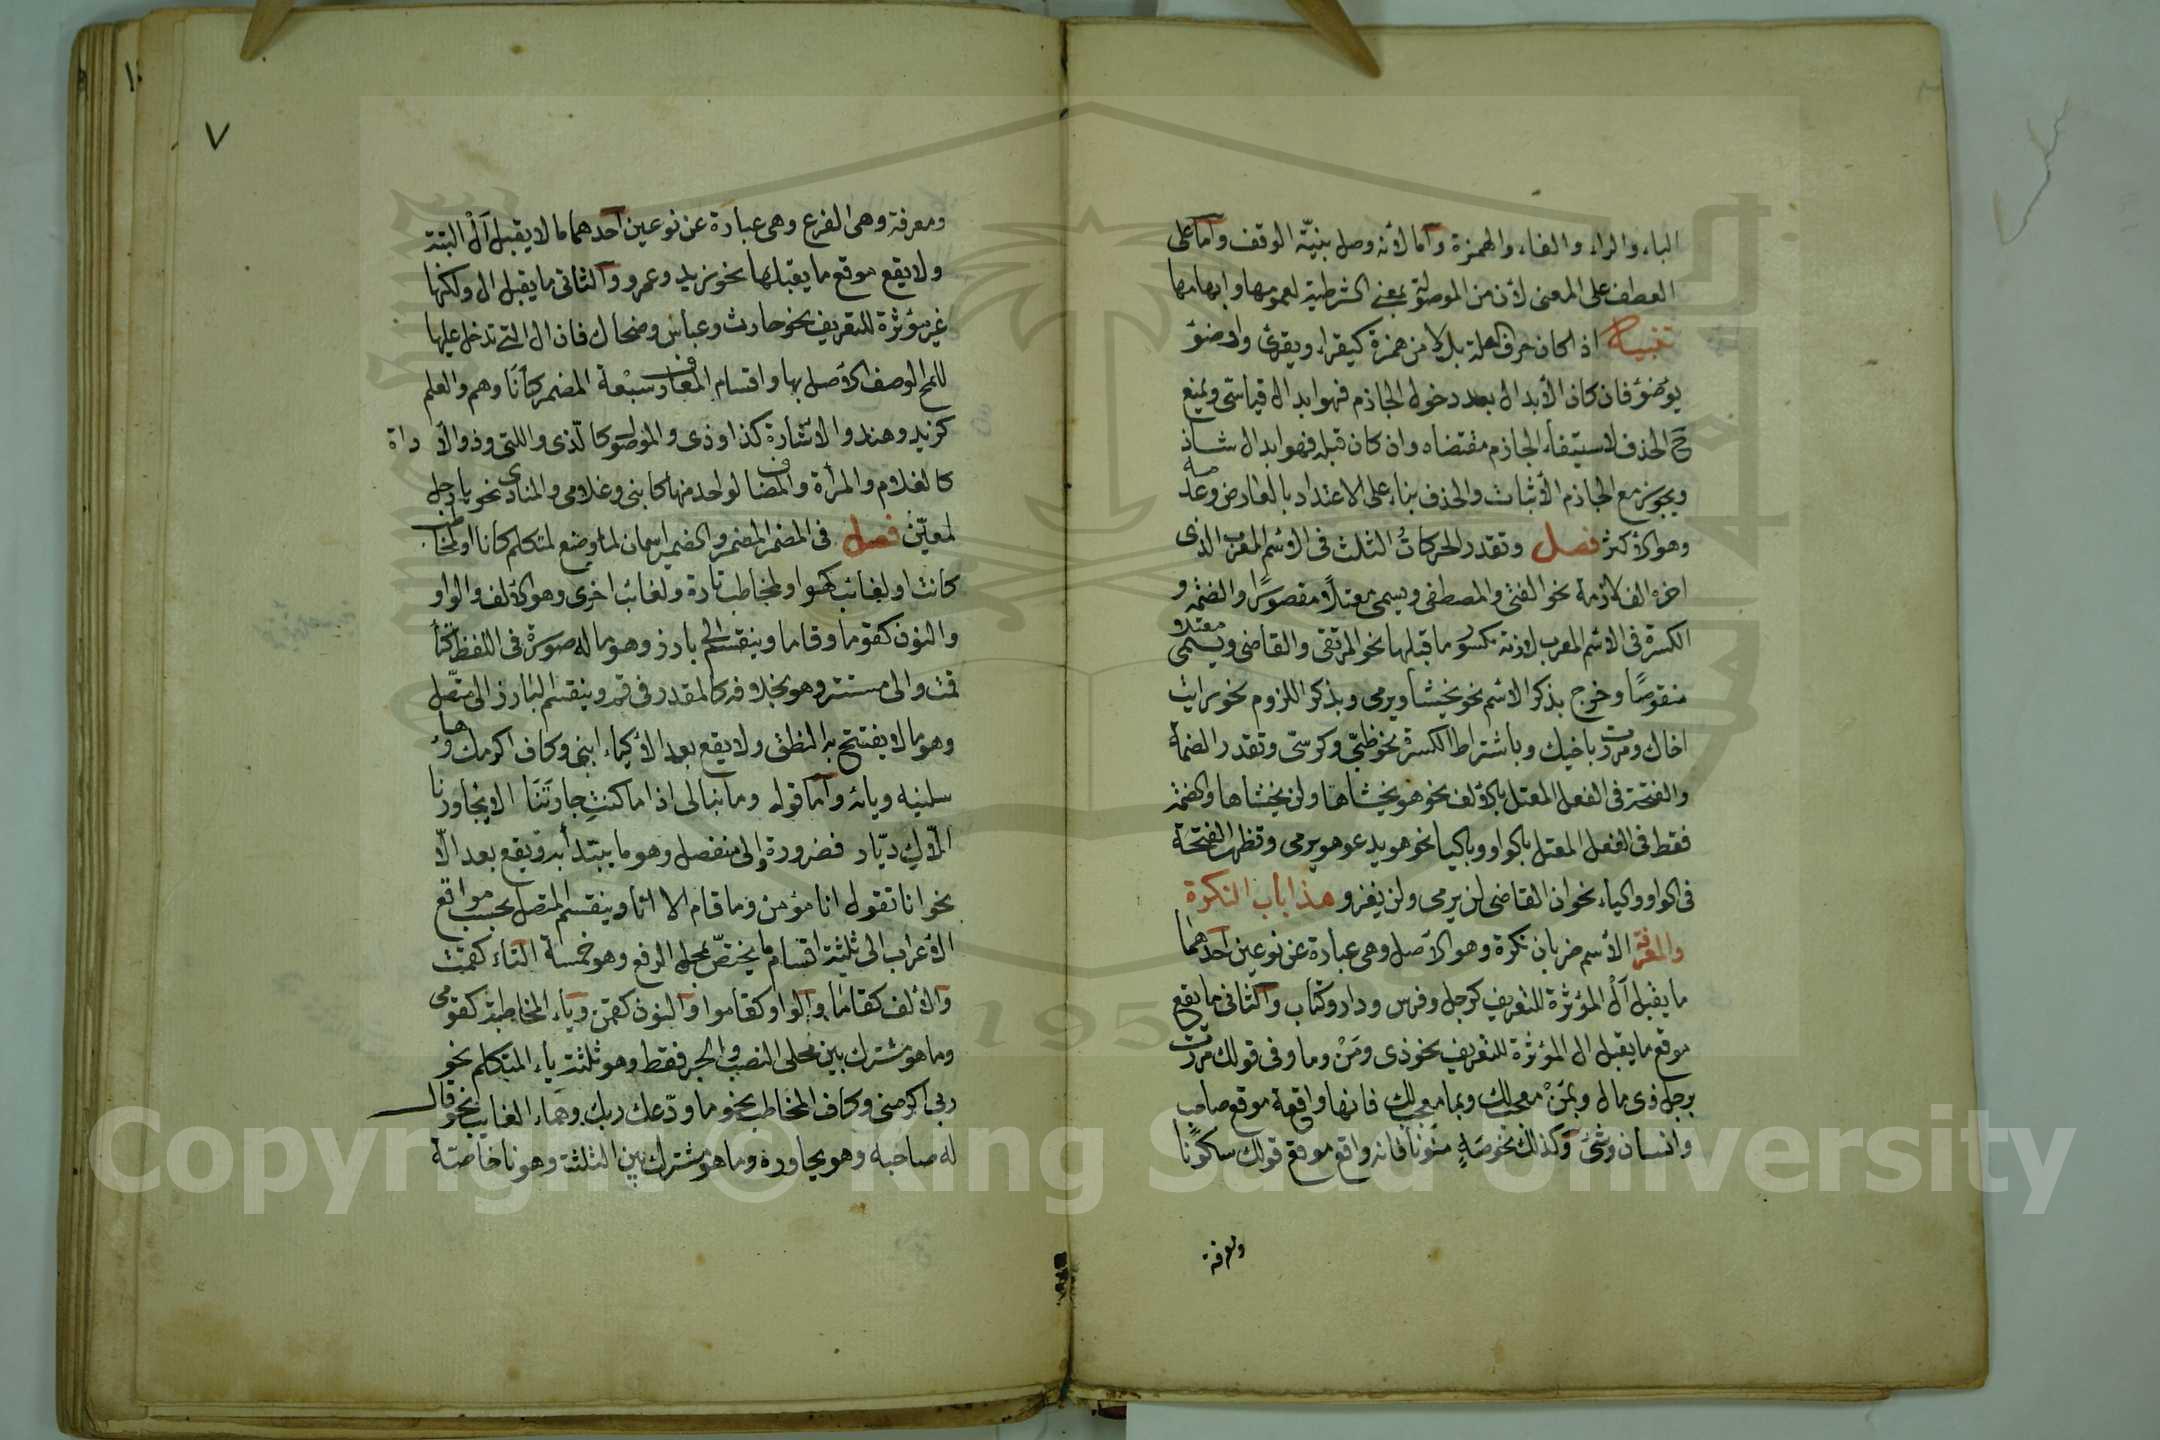 الباء والراء والفاء والهمزة وأما لأنه وصل بنيّة الوقف وأما على
العطف على المعنى لأن من الموصولة بمعنى الشرطية لعمومها وابهامها
تنبيه اذا كان حرف العلة بدلا من همزة كيقراء ويقرئ واوضؤ
يوضؤ فان كان الأبدال بعد دخول الجازم فهو ابدال قياسى ويمتنع
ح الحذف لاستيفاء الجازم مقتضاه وان كان قبله فهو ابدال شاذ
ويجوز مع الجازم الأثبات والحذف بناء على الاعتداد بالعارض وعدمه
وهو الأكثر فصل وتقدر الحركات الثلث فى الاسم المعرب الذى
اخره الف لازمة نحو الفتى والمصطفى ويسمى معتلاً مقصورًا والضمة و
الكسرة فى الاسم المعرب لازمة مكسور ما قبلها نحو المرتقى والقاضى ويسمى معتلا
منقوصًا وخرج بذكر الاسم نحو يخشا ويرمى وبذكر اللزوم نحو رايت
اخاك ومررت باخيك وباشتراط الكسرة نحو ظبىّ وكرسىّ وتقدر الضمة
والفتحة فى الفعل المعتل بالألف نحو هو يخشاها ولن يخشاها والضمة
فقط فى الفعل المعتل بالواو وبالياء نحو هو يدعو هو يرمى وتظهر الفتحة
فى الواو والياء نحو ان القاضى لن يرمى ولن يغزو هذا باب النكرة
والمعرفة الأسم ضربان نكرة وهو الأصل وهى عبارة عن نوعين أحدهما
ما يقبل أَلْ المؤثرة للتعريف كرجل وفرس ودار وكتاب والثانى ما يقع
موقع ما يقبل ال المؤثرة للتعريف نحو ذى ومَنْ وما وفى قولك مررت
برجل ذى مال وبمَنْ معجب لك وبما معجب لك فانها واقعة موقع صاحب
وانسان وشئ وكذلك نحو صَهٍ منَونا فانه واقع موقع قولك سكوتًا
ومعرفة
٧
ومعرفة وهى الفرع وهى عبارة عن نوعين أحدهما ما لا يقبل أَلْ البتة
ولا يقع موقع ما يقبلها نحو زيد وعمرو والثانى ما يقبل ال ولكنها
غير مؤثرة للتعريف نحو حارث وعباس وضحاك فان ال التى تدخل عليها
للمح الوصف الأصل بها واقسام المعارف سبعة المضمر كأنَا وهم والعلم
كزيد وهند والاشارة كذا وذى والموصول كالّذى واللتى وذو الاداة
كالغلام والمرأة والمضاف لواحد منها كابنى وغلامى والمنادى نحو يا رجل
لمعيّن فصل فى المضمر المضمر والضمير اسمان لما وضع لمتكلم كانا او لمخاطب
كانت او لغائب كهو او لمخاطب تارة ولغائب اخرى وهو الألف والواو
والنون كقوما وقاما وينقسم الى بارز وهو ما له صورة فى اللفظ كتا
قمت والى مستتر وهو بخلافه كالمقدر فى قم وينقسم البارز الى متصل
وهو ما لا يفتتح به النطق ولا يقع بعد الأ كياء ابنى وكاف اكرمك وها
سلنيه ويائه وأما قوله وما نبالى اذا ما كنتِ جارتَنَا الا يجاورنا
الّاكِ ديّار فضرورة والى منفصل وهو ما يبتدأ به ويقع بعد الّا
نحو انا تقول انا مؤمن وما قام الا انا وينقسم المتصل بحسب مواقع
الأعراب الى ثلثة اقسام ما يختصّ بمحل الرفع وهو خمسة التاء كقمت
والألف كقاما والواو كقاموا والنون كقمن وياء المخاطبة كقومى
وما هو مشترك بين محلى النصب والجر فقط وهو ثلثة ياء المتكلم نحو
ربى اكرمنى وكاف المخاطب نحو ما ودّعك ربك وهاء الغايب نحو قال
له صاحبه وهو يحاوره وما هو مشترك بين الثلثة وهو نا خاصّة
Copyright © King Saud University
195